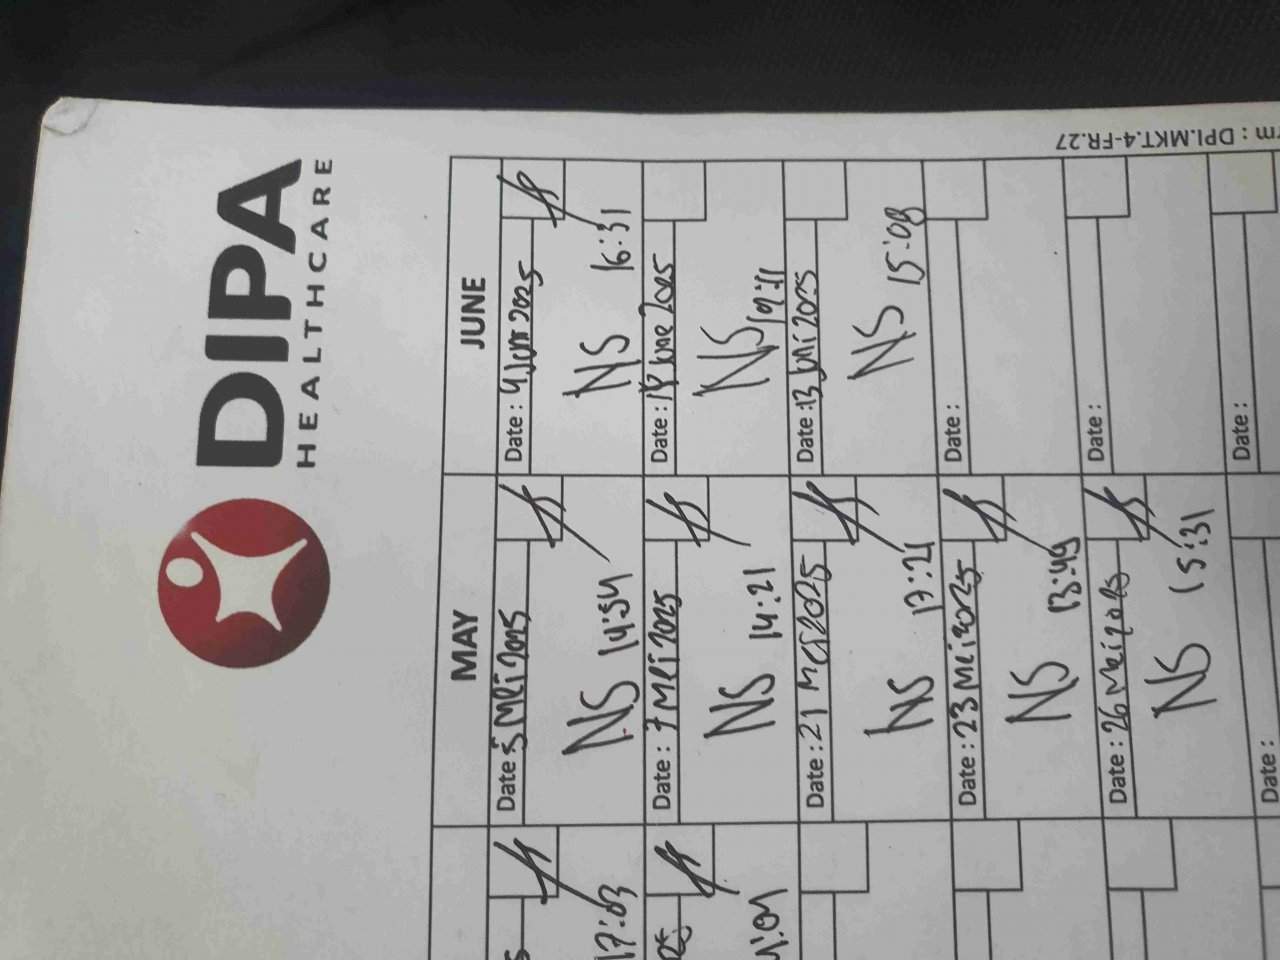 DIPA
HEALTHCARE
MAY
JUNE
Date : 5 Mei 2025
NS 14:54
Date : 7 Mei 2025
NS 14:21
Date : 21 Mei 2025
NS 17:21
Date : 23 Mei 2025
NS 13:49
Date : 26 Mei 2025
NS 15:31
Date :
Date : 4 Juni 2025
NS 16:31
Date : June 2025
NS
Date : 13 Juni 2025
NS 15:08
Date :
Date :
Date :
17:03
: DPI.MKT.4-FR.27